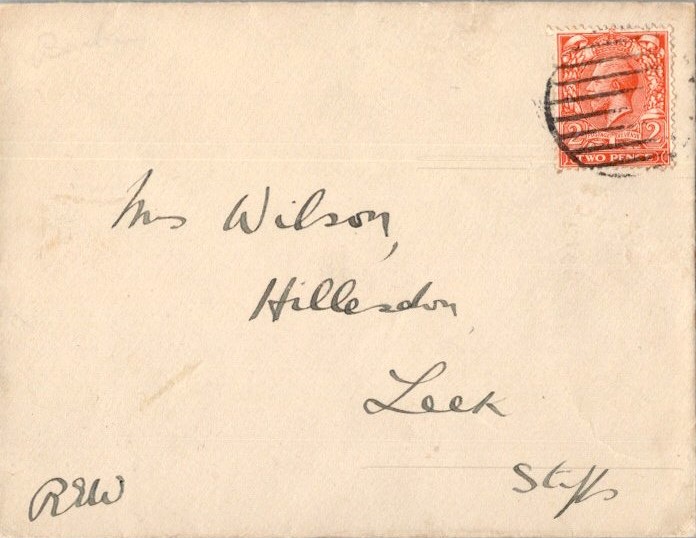 2 2
TWO PENCE
Mrs Wilson,
Hillesdon,
Leek
Staffs
REW